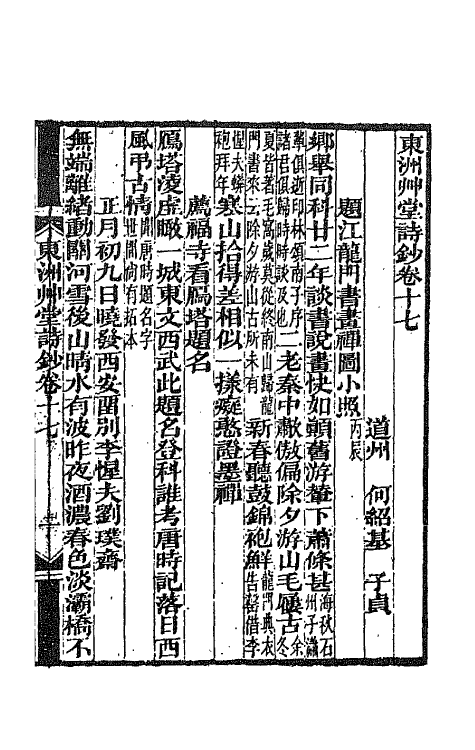 東洲艸堂詩鈔卷十七
道州　何紹基　子貞
題江龍門書畫禪圖小照丙辰
鄉舉同科廿二年談書說畫快如顛舊游輦下蕭條甚海秋石州子瀟
諸君俱歸時時談及也二老秦中歗傲偏除夕游山毛屨古冬
夏皆著毛窩歲莫從終南山歸龍門書來云除夕游山古所未有新春聽鼓錦袍鮮龍門典衣告罄借李
惺夫蟒袍拜年寒山拾得差相似一樣癡憨證墨禪
薦福寺看鴈塔題名
鴈塔凌虛瞰一城東文西武此題名登科誰考唐時記落日西
風弔古情聞唐時題名字世間尚有拓本
正月初九日曉發西安留別李惺夫劉璞齋
無端離緒動關河雪後山晴水有波昨夜酒濃春色淡灞橋不
東洲艸堂詩鈔卷十七